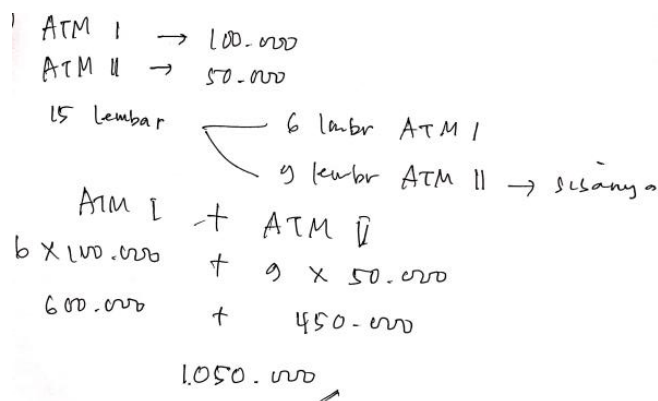 ATM I → 100.000
ATM II → 50.000
15 lembar
6 lmbr ATM I
9 lembr ATM II → sisanya
ATM I + ATM II
6 x 100.000 + 9 x 50.000
600.000 + 450.000
1.050.000